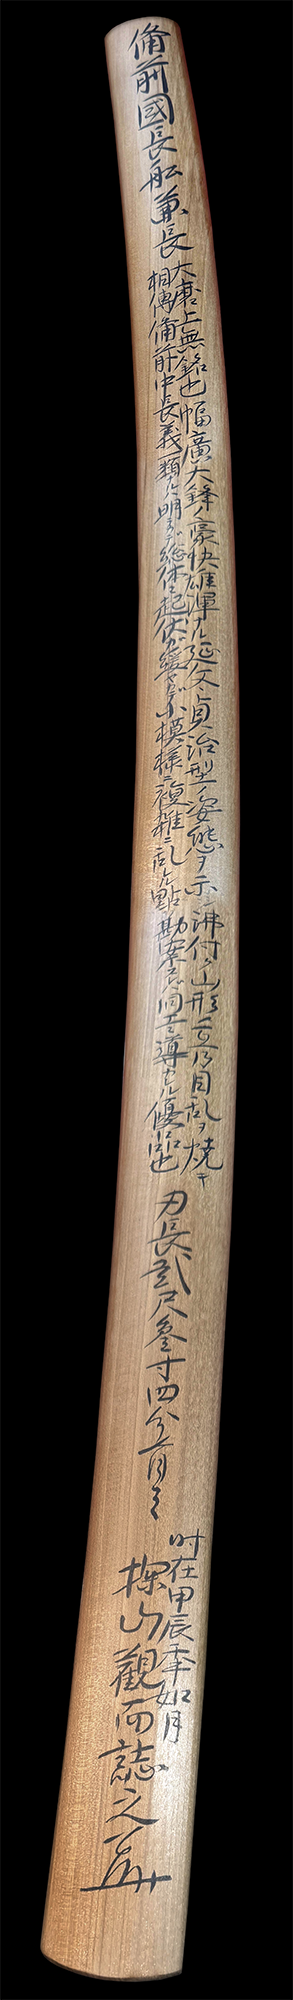 備前國長船兼長
大磨上無銘也幅廣大鋒ノ豪快雄渾ナル延文・貞治型ノ姿態ヲ示シ沸付ク山形ノ互乃目乱ヲ焼キ
相傳備前中長義一類ナルハ明ラカデ総体ニ起伏ガ緩ヤカデ小模様ニ複雑ニ乱ルル點勘案スレバ同工ニ導カルル優品也
刃長貳尺参寸四分半有之
时在甲辰季如月
探山觀而誌之